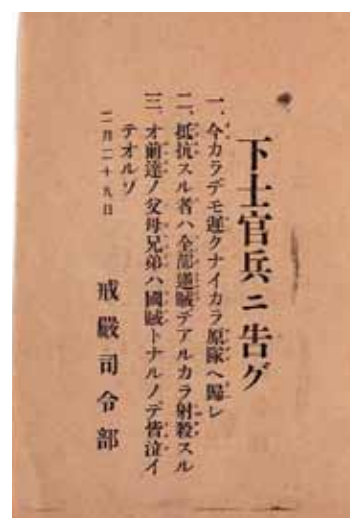 下士官兵ニ告グ
一、今カラデモ遲クナイカラ原隊ヘ歸レ
二、抵抗スル者ハ全部逆賊デアルカラ射殺スル
三、オ前達ノ父母兄弟ハ國賊トナルノデ皆泣イ
テオルゾ
二月二十九日
戒嚴司令部